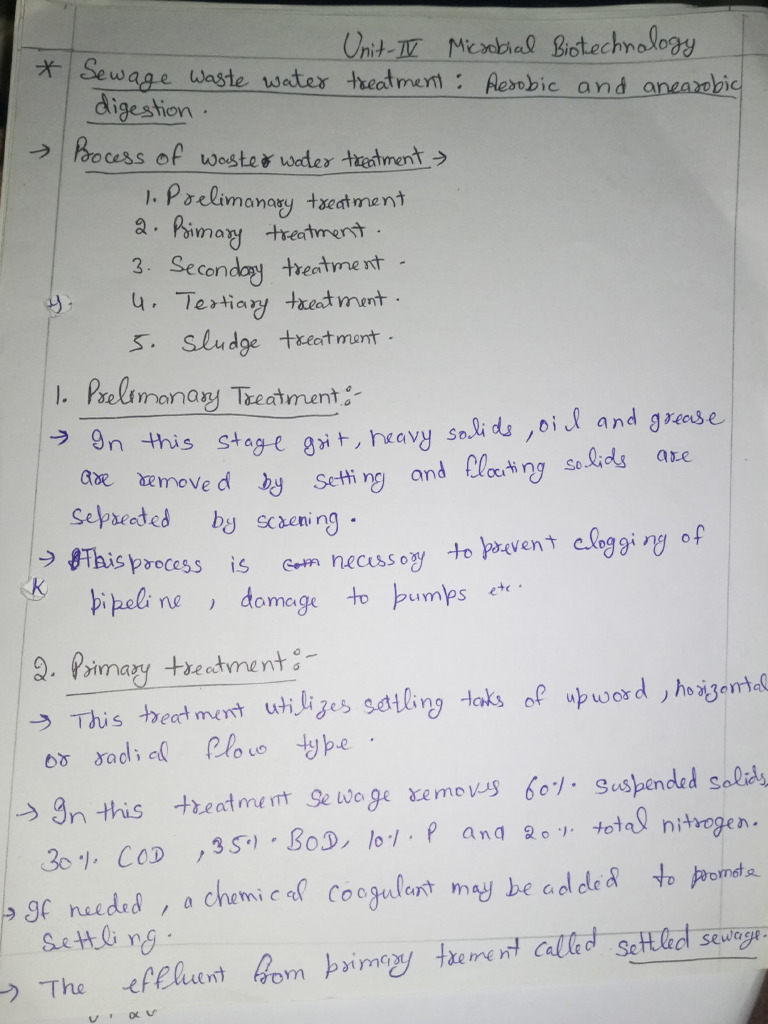 Unit-IV Microbial Biotechnology
* Sewage waste water treatment : Aerobic and anearobic
digestion .
→ Process of waste water treatment →
1. Prelimanary treatment
2. Primary treatment .
3. Secondary treatment -
4. Tertiary treatment .
5. Sludge treatment .
1. Prelimanary Treatment :-
→ In this stage grit, heavy solids , oil and grease
are removed by setting and floating solids are
sepreated by screning .
→ This process is necessory to prevent clogging of
K
pipeline , damage to pumps etc .
2. Primary treatment :-
→ This treatment utilizes settling taks of upword , horizontal
or radial flow type .
→ In this treatment sewage removes 60% suspended solids,
30% COD , 35% BOD, 10% P and 20% total nitrogen.
→ If needed , a chemical coagulant may be added to promote
settling .
→ The effluent from primary trement called settled sewage.